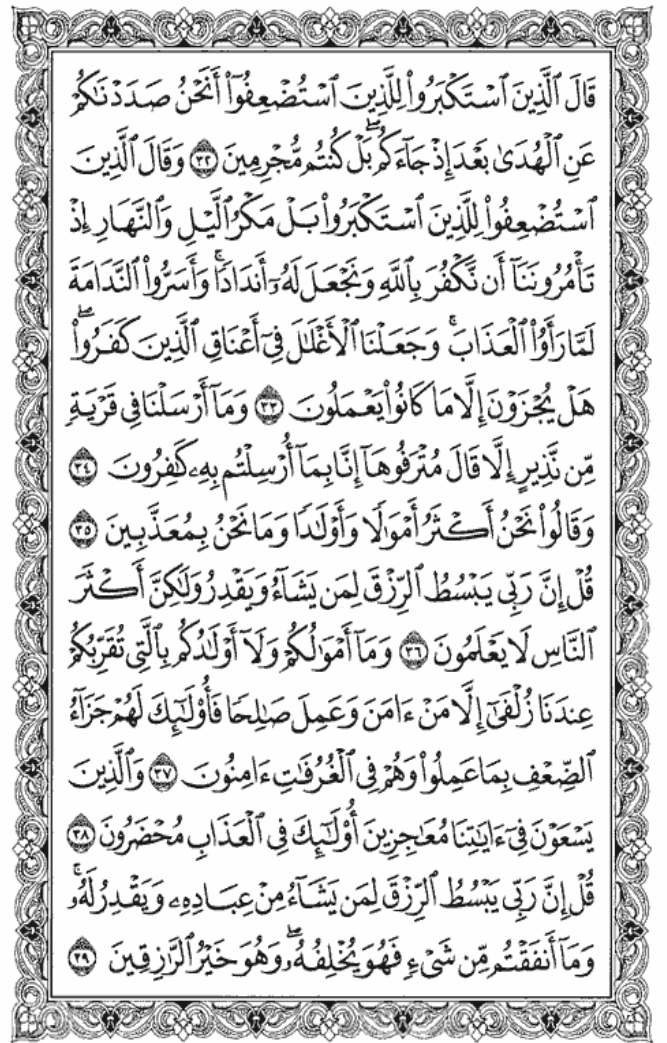 قَالَ ٱلَّذِينَ ٱسۡتَكۡبَرُواْ لِلَّذِينَ ٱسۡتُضۡعِفُوٓاْ أَنَحۡنُ صَدَدۡنَٰكُمۡ
عَنِ ٱلۡهُدَىٰ بَعۡدَ إِذۡ جَآءَكُمۖ بَلۡ كُنتُم مُّجۡرِمِينَ ٣٢ وَقَالَ ٱلَّذِينَ
ٱسۡتُضۡعِفُواْ لِلَّذِينَ ٱسۡتَكۡبَرُواْ بَلۡ مَكۡرُ ٱلَّيۡلِ وَٱلنَّهَارِ إِذۡ
تَأۡمُرُونَنَآ أَن نَّكۡفُرَ بِٱللَّهِ وَنَجۡعَلَ لَهُۥٓ أَندَادٗاۚ وَأَسَرُّواْ ٱلنَّدَامَةَ
لَمَّا رَأَوُاْ ٱلۡعَذَابَۚ وَجَعَلۡنَا ٱلۡأَغۡلَٰلَ فِيٓ أَعۡنَاقِ ٱلَّذِينَ كَفَرُواْۖ
هَلۡ يُجۡزَوۡنَ إِلَّا مَا كَانُواْ يَعۡمَلُونَ ٣٣ وَمَآ أَرۡسَلۡنَا فِي قَرۡيَةٖ
مِّن نَّذِيرٍ إِلَّا قَالَ مُتۡرَفُوهَآ إِنَّا بِمَآ أُرۡسِلۡتُم بِهِۦ كَٰفِرُونَ ٣٤
وَقَالُواْ نَحۡنُ أَكۡثَرُ أَمۡوَٰلٗا وَأَوۡلَٰدٗا وَمَا نَحۡنُ بِمُعَذَّبِينَ ٣٥
قُلۡ إِنَّ رَبِّي يَبۡسُطُ ٱلرِّزۡقَ لِمَن يَشَآءُ وَيَقۡدِرُ وَلَٰكِنَّ أَكۡثَرَ
ٱلنَّاسِ لَا يَعۡلَمُونَ ٣٦ وَمَآ أَمۡوَٰلُكُمۡ وَلَآ أَوۡلَٰدُكُم بِٱلَّتِي تُقَرِّبُكُمۡ
عِندَنَا زُلۡفَىٰٓ إِلَّا مَنۡ ءَامَنَ وَعَمِلَ صَٰلِحٗا فَأُوْلَٰٓئِكَ لَهُمۡ جَزَآءُ
ٱلضِّعۡفِ بِمَا عَمِلُواْ وَهُمۡ فِي ٱلۡغُرُفَٰتِ ءَامِنُونَ ٣٧ وَٱلَّذِينَ
يَسۡعَوۡنَ فِيٓ ءَايَٰتِنَا مُعَٰجِزِينَ أُوْلَٰٓئِكَ فِي ٱلۡعَذَابِ مُحۡضَرُونَ ٣٨
قُلۡ إِنَّ رَبِّي يَبۡسُطُ ٱلرِّزۡقَ لِمَن يَشَآءُ مِنۡ عِبَادِهِۦ وَيَقۡدِرُ لَهُۥۚ
وَمَآ أَنفَقۡتُم مِّن شَيۡءٖ فَهُوَ يُخۡلِفُهُۥۖ وَهُوَ خَيۡرُ ٱلرَّٰزِقِينَ ٣٩